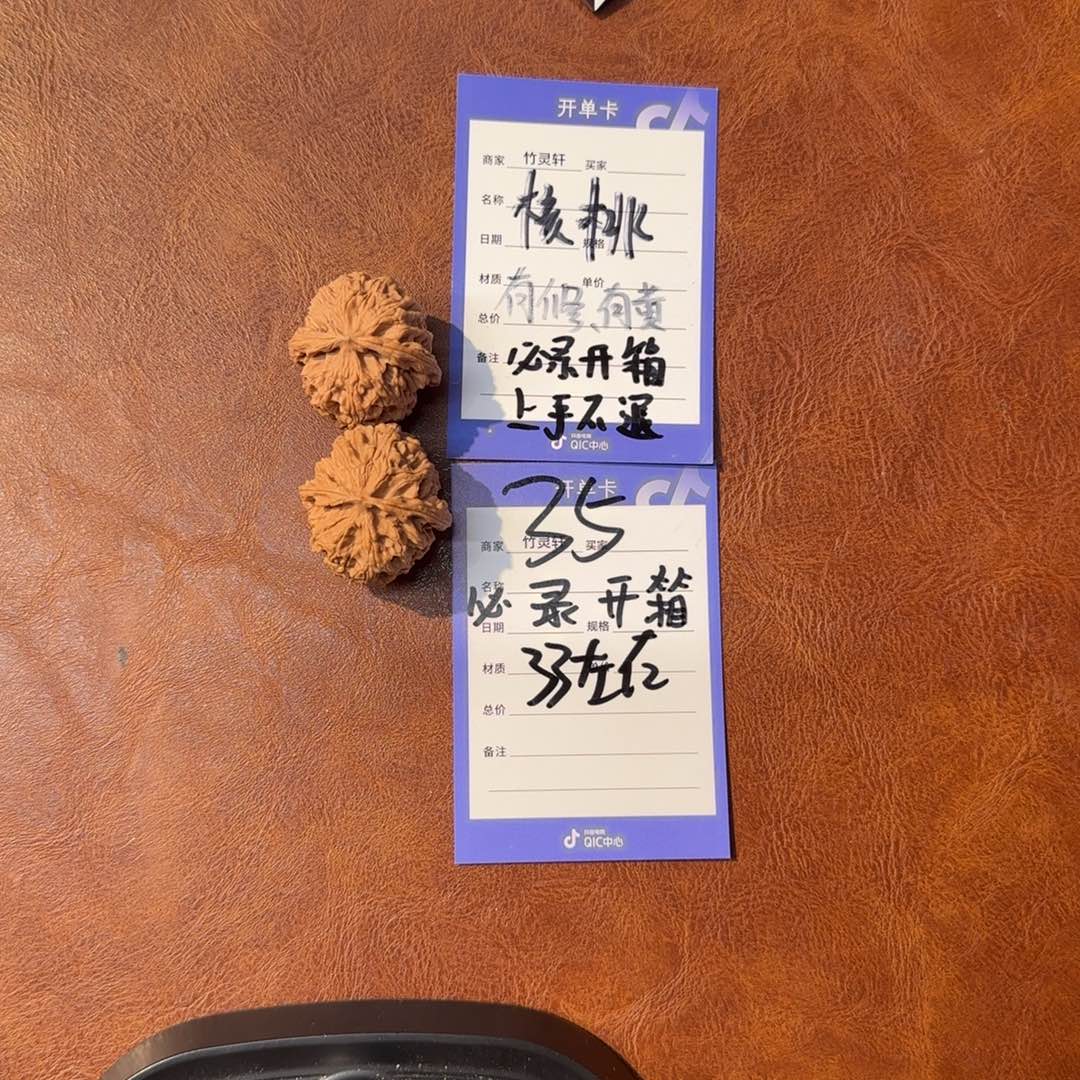 开单卡
商家 竹灵轩 买家
名称 核桃
日期 规格
材质 单价
有修、有黄
总价
备注 必录开箱
上手不退
抖音电商
QIC中心
开单卡
35
商家 竹灵轩 买家
名称
必录开箱
日期 规格
材质 33左右
总价
备注
抖音电商
QIC中心